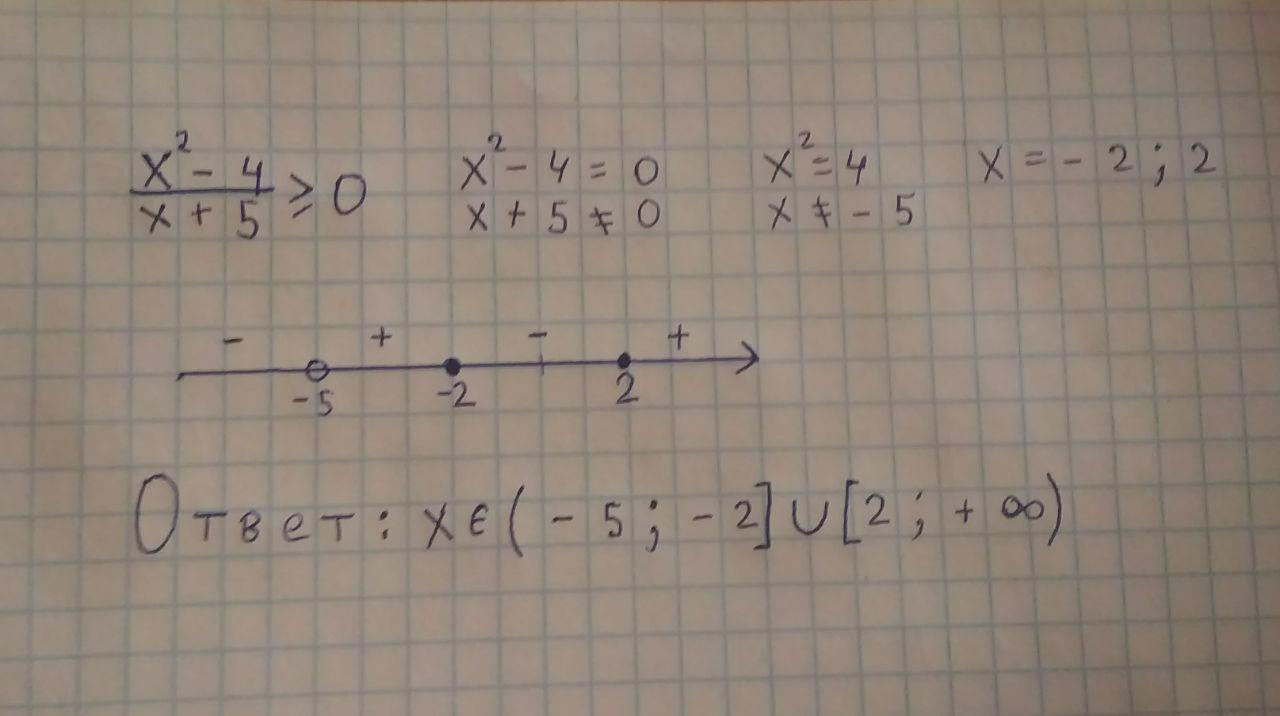 x² - 4 / x + 5 ≥ 0
x² - 4 = 0
x + 5 ≠ 0
x² = 4
x ≠ - 5
x = - 2 ; 2
- + - +
-5 -2 2
Ответ: x ∈ ( - 5 ; - 2] ∪ [2 ; + ∞)